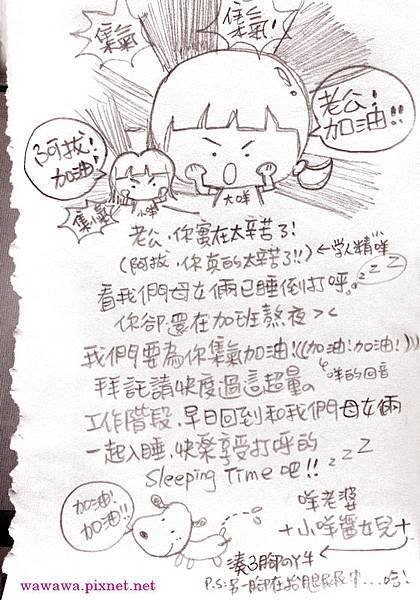 集氣!
集氣!
老公!
加油!!
阿拔!
加油!
集氣
小咩
大咩
老公,你實在太辛苦了!
(阿拔,你真的太辛苦了!!)←學人精咩
看我們母女倆已睡倒打呼。zzz
你卻還在加班熬夜><
我們要為你集氣加油!((加油!加油!)))
咩的回音
拜託請快度過這超量的
工作階段,早日回到和我們母女倆
一起入睡,快樂享受打呼的
Sleeping Time 吧!! zzz
加油!
加油!!
咩老婆
+小咩醬女兒+
湊3腳の牛
P.S:另一腳在抬腿尿尿中...哈!
wawawa.pixnet.net